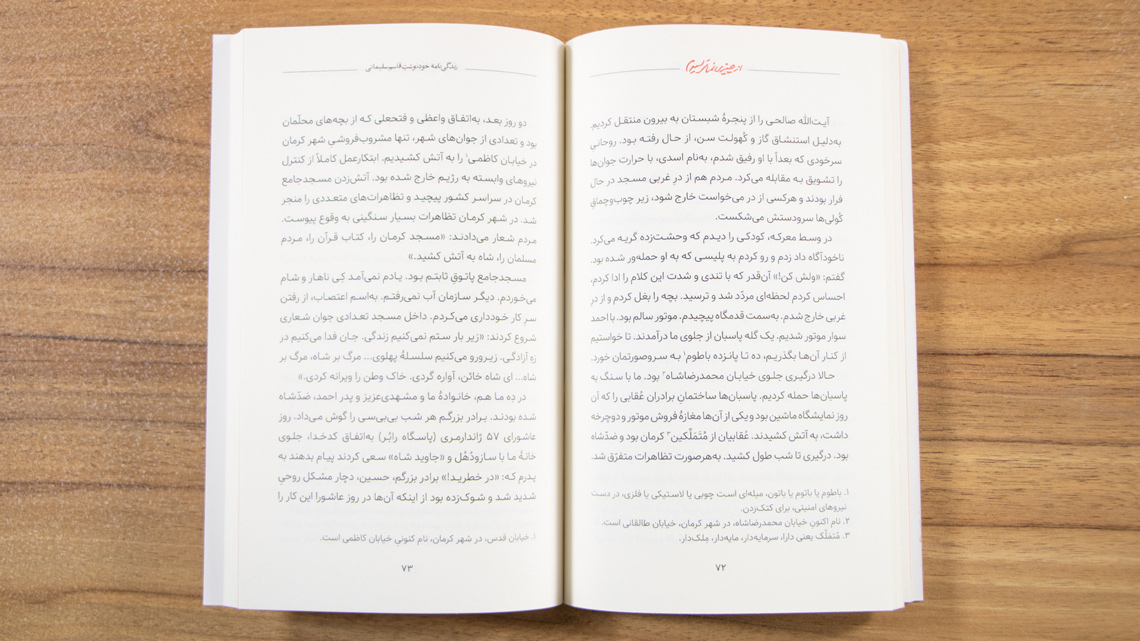 از چیزی نمی‌ترسیدم
آیت‌الله صالحی را از پنجرهٔ شبستان به بیرون منتقل کردیم.
به‌دلیل استنشاق گاز و کُهولت سن، از حال رفته بود. روحانی
سرخودی که بعداً با او رفیق شدم، به‌نام اسدی، با حرارت جوان‌ها
را تشویق به مقابله می‌کرد. مردم هم از درِ غربی مسجد در حال
فرار بودند و هرکسی از در می‌خواست خارج شود، زیر چوب‌وچماقِ
کُولی‌ها سرودستش می‌شکست.
در وسط معرکه، کودکی را دیدم که وحشت‌زده گریه می‌کرد.
ناخودآگاه داد زدم و رو کردم به پلیسی که به او حمله‌ور شده بود.
گفتم: «ولش کن!» آن‌قدر که با تندی و شدت این کلام را ادا کردم،
احساس کردم لحظه‌ای مردّد شد و ترسید. بچه را بغل کردم و از درِ
غربی خارج شدم. به‌سمت قدمگاه پیچیدم. موتور سالم بود. با احمد
سوار موتور شدیم. یک گله پاسبان از جلوی ما درآمدند. تا خواستیم
از کنار آن‌ها بگذریم، ده تا پانزده باطوم۱ به سروصورتمان خورد.
حالا درگیری جلوی خیابان محمدرضاشاه۲ بود. ما با سنگ به
پاسبان‌ها حمله کردیم. پاسبان‌ها ساختمانِ برادران عُقابی را که آن
روز نمایشگاه ماشین بود و یکی از آن‌ها مغازهٔ فروش موتور و دوچرخه
داشت، به آتش کشیدند. عُقابیان از مُتَمَلّکین۳ کرمان بود و ضدّشاه
بود. درگیری تا شب طول کشید. به‌هرصورت تظاهرات متفرّق شد.
۱. باطوم یا باتوم یا باتون، میله‌ای است چوبی یا لاستیکی یا فلزی، در دست
نیروهای امنیتی، برای کتک‌زدن.
۲. نام اکنونِ خیابان محمدرضاشاه، در شهر کرمان، خیابان طالقانی است.
۳. مُتَمَلّک یعنی دارا، سرمایه‌دار، مایه‌دار، مِلک‌دار.
۷۲
زندگی‌نامهٔ خودنوشتِ قاسم سلیمانی
دو روز بعد، به‌اتفاق واعظی و فتحعلی که از بچه‌های محلّمان
بود و تعدادی از جوان‌های شهر، تنها مشروب‌فروشیِ شهر کرمان
در خیابان کاظمی۱ را به آتش کشیدیم. ابتکارعمل کاملاً از کنترل
نیروهای وابسته به رژیم خارج شده بود. آتش‌زدن مسجدجامع
کرمان در سراسر کشور پیچید و تظاهرات‌های متعددی را منجر
شد. در شهر کرمان تظاهرات بسیار سنگینی به وقوع پیوست.
مردم شعار می‌دادند: «مسجد کرمان را، کتاب قرآن را، مردم
مسلمان را، شاه به آتش کشید.»
مسجدجامع پاتوقِ ثابتم بود. یادم نمی‌آمد کِی ناهار و شام
می‌خوردم. دیگر سازمان آب نمی‌رفتم. به‌اسم اعتصاب، از رفتن
سرِ کار خودداری می‌کردم. داخل مسجد تعدادی جوان شعاری
شروع کردند: «زیر بار ستم نمی‌کنیم زندگی. جان فدا می‌کنیم در
رَهِ آزادگی. زیرورو می‌کنیم سلسلهٔ پهلوی... مرگ بر شاه، مرگ بر
شاه... ای شاه خائن، آواره گردی. خاک وطن را ویرانه کردی.»
در دِه ما هم، خانوادهٔ ما و مشهدی‌عزیز و پدر احمد، ضدّشاه
شده بودند. برادر بزرگم هر شب بی‌بی‌سی را گوش می‌داد. روز
عاشورای ۵۷ ژاندارمری (پاسگاه رائُر) به‌اتفاق کدخدا، جلوی
خانهٔ ما با سازودُهُل و «جاوید شاه» سعی کردند پیام بدهند به
پدرم که: «در خطرید!» برادر بزرگم، حسین، دچار مشکل روحیِ
شدید شد و شوک‌زده بود از اینکه آن‌ها در روز عاشورا این کار را
۱. خیابان قدس، در شهر کرمان، نام کنونیِ خیابان کاظمی است.
۷۳